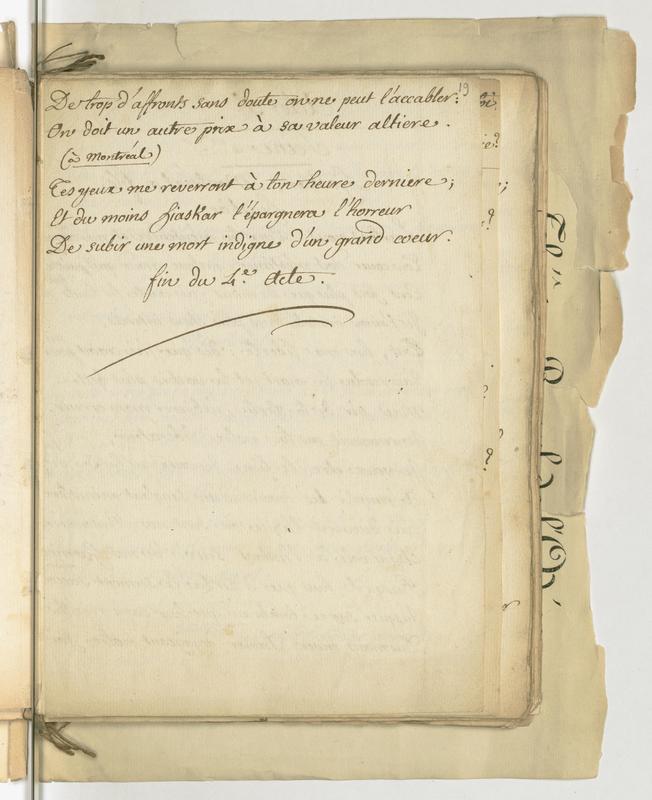 19
De trop d'affronts sans doute on ne peut l'accabler:
On doit un autre prix à sa valeur altiere.
(à Montréal)
Tes yeux me reverront à ton heure derniere;
Et du moins hiaskar t'épargnera l'horreur
De subir une mort indigne d'un grand coeur.
fin du 4.e Acte.